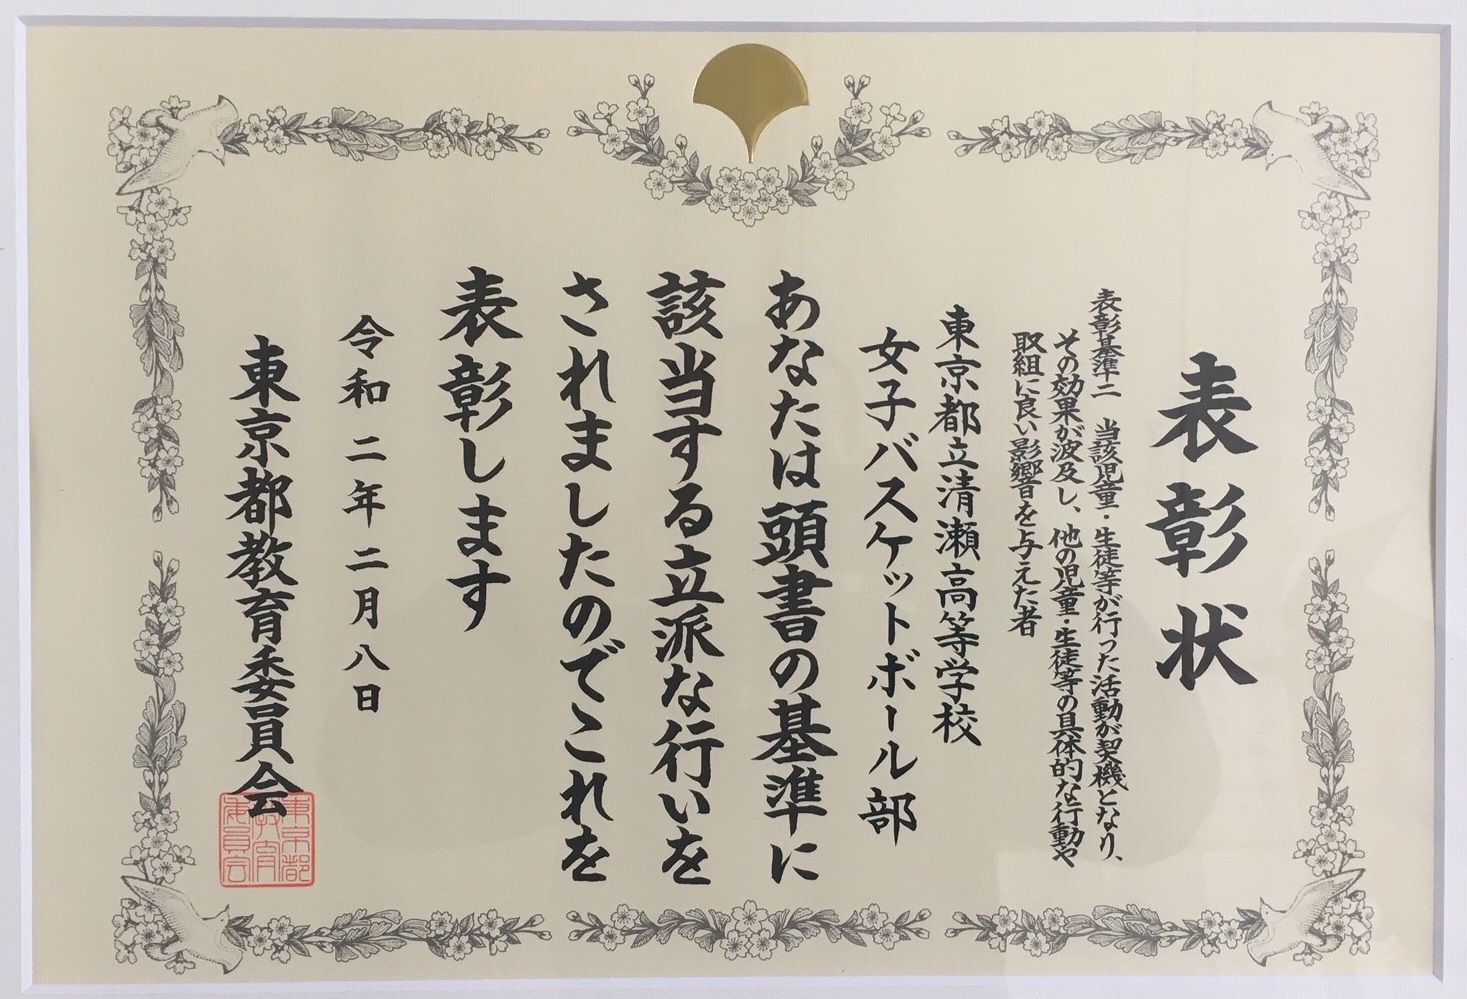 表彰状
表彰基準二 当該児童・生徒等が行った活動が契機となり、
その効果が波及し、他の児童・生徒等の具体的な行動や
取組に良い影響を与えた者
東京都立清瀬高等学校
女子バスケットボール部
あなたは頭書の基準に
該当する立派な行いを
されましたのでこれを
表彰します
令和二年二月八日
東京都教育委員会
東京都
教育
委員会